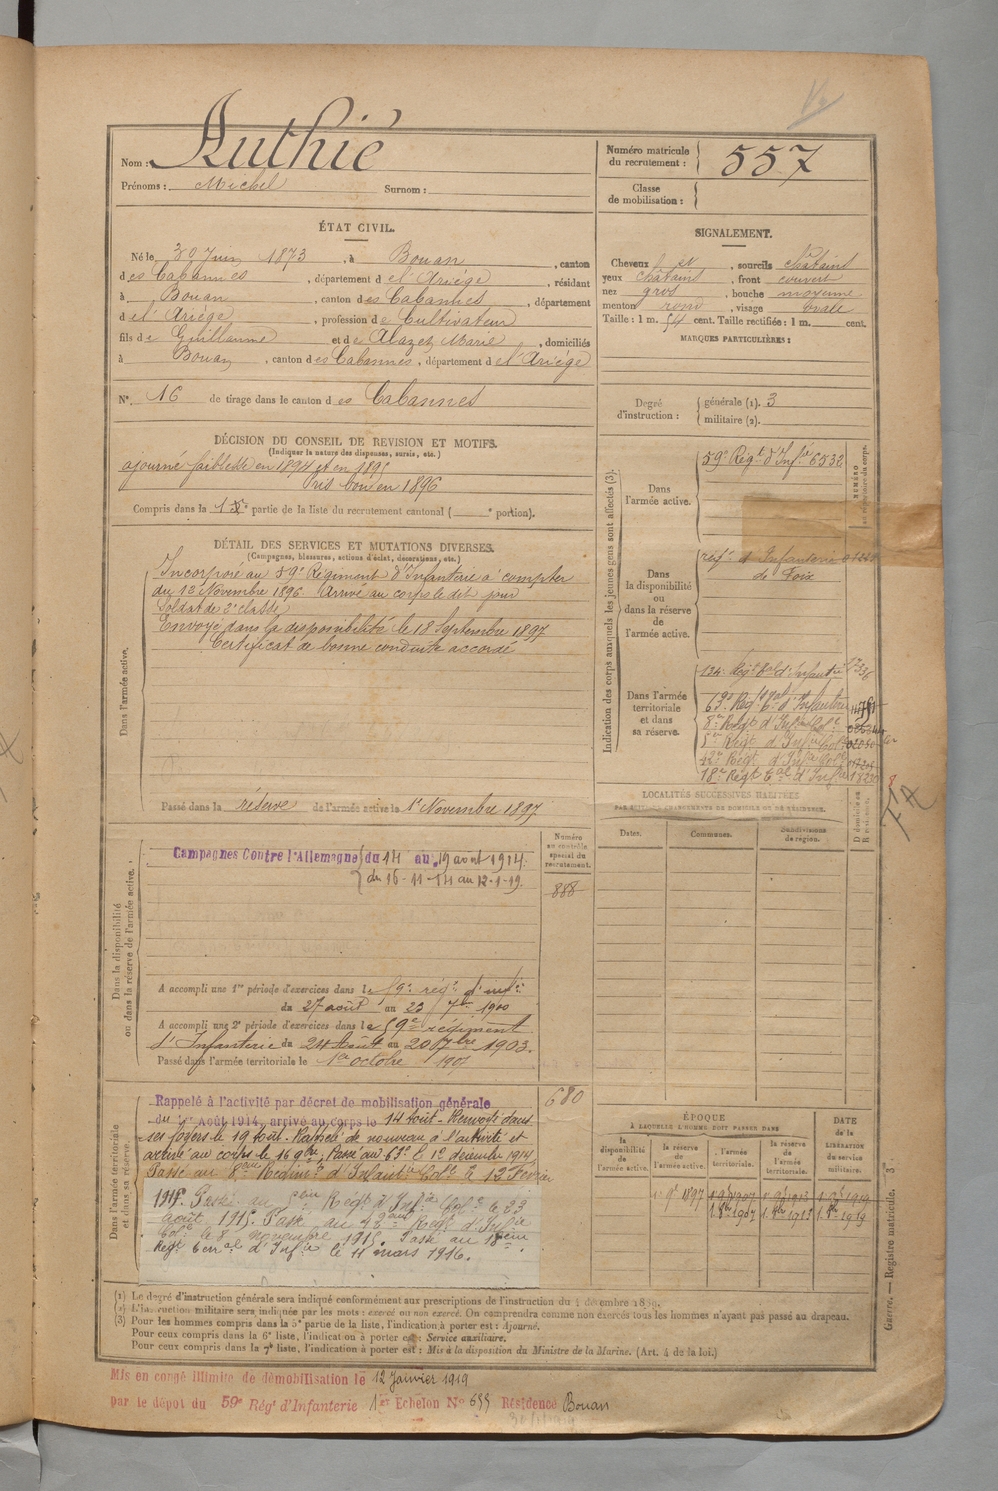 Nom : Authié
Prénoms : Michel Surnom :
Numéro matricule du recrutement : 557
Classe de mobilisation :
ÉTAT CIVIL.
Né le 30 Juin 1873, à Bouan, canton
des Cabannes, département de l'Ariège, résidant
à Bouan, canton des Cabannes, département
de l'Ariège, profession de Cultivateur
fils de Guillaume et de Alazet Marie, domiciliés
à Bouan, canton des Cabannes, département de l'Ariège
N°. 16 de tirage dans le canton des Cabannes
SIGNALEMENT.
Cheveux , sourcils châtains
yeux châtains, front couvert
nez gros, bouche moyenne
menton rond, visage ovale
Taille : 1 m. 54 cent. Taille rectifiée : 1 m. cent.
MARQUES PARTICULIÈRES :
Degré d'instruction : générale (1). 3
militaire (2).
DÉCISION DU CONSEIL DE REVISION ET MOTIFS.
(Indiquer la nature des dispenses, sursis, etc.)
ajourné faiblesse en 1894 et en 1895
Pris bon en 1896
Compris dans la 1re partie de la liste du recrutement cantonal ( e portion).
DÉTAIL DES SERVICES ET MUTATIONS DIVERSES.
(Campagnes, blessures, actions d'éclat, décorations, etc.)
Dans l'armée active.
Incorporé au 59e Régiment d'Infanterie à compter
du 12 Novembre 1896 Arrivé au corps le dit jour
Soldat de 2e classe
Envoyé dans la disponibilité le 18 Septembre 1897
Certificat de bonne conduite accordé
Passé dans la réserve de l'armée active le 1er Novembre 1897
Indication des corps auxquels les jeunes gens sont affectés (3).
NUMÉRO au répertoire du corps.
Dans l'armée active.
59e Régt d'Infie 6532
Dans la disponibilité ou dans la réserve de l'armée active.
régt d'Infanterie
de Foix
Dans l'armée territoriale et dans sa réserve.
134e Régt tal d'Infanterie
63e Régt tal d'Infanterie
8e Régt d'Infie Cole
5e Régt d'Infie Cole
42e Régt d'Infie Cole
18e Régt Tal d'Infie
LOCALITÉS SUCCESSIVES HABITÉES
PAR SUITE DE CHANGEMENTS DE DOMICILE OU DE RÉSIDENCE.
Dates. Communes. Subdivisions de région. D domicile ou R résidence.
Dans la disponibilité ou dans la réserve de l'armée active.
Numéro au contrôle spécial du recrutement.
888
Campagnes Contre l'Allemagne du 14 au 19 août 1914.
du 16-11-14 au 12-1-19.
A accompli une 1re période d'exercices dans le 59e régt d'infie
du 27 août au 23 7bre 1900
A accompli une 2e période d'exercices dans le 59e régiment
d'Infanterie du 24 Août au 20 7bre 1903.
Passé dans l'armée territoriale le 1er octobre 1907
Dans l'armée territoriale et dans sa réserve.
680
Rappelé à l'activité par décret de mobilisation générale
du 1er Août 1914, arrivé au corps le 14 Août. Renvoyé dans
ses foyers le 19 Août. Rappelé de nouveau à l'activité et
arrivé au corps le 16 9bre. Passé au 63e le 1er décembre 1914
Passé au 8eme Régiment d'Infanterie Cole le 12 Février
1915. Passé au 5eme Régt d'Infie Cole le 23
août 1915. Passé au 42eme Régt d'Infie
Cole le 8 novembre 1915. Passé au 18eme
Régt Terral d'Infie le 11 mars 1916.
ÉPOQUE
À LAQUELLE L'HOMME DOIT PASSER DANS
la disponibilité de l'armée active. la réserve de l'armée active. l'armée territoriale. la réserve de l'armée territoriale.
DATE de la LIBÉRATION du service militaire.
1er 9bre 1897 1er 9bre 1907 1er 9bre 1913 1er 9bre 1919
1. 8bre 1907 1. 8bre 1913 1. 8bre 1919
Guerre. — Registre matricule. — 3
(1) Le degré d'instruction générale sera indiqué conformément aux prescriptions de l'instruction du 4 décembre 1889.
(2) L'instruction militaire sera indiquée par les mots : exercé ou non exercé. On comprendra comme non exercés tous les hommes n'ayant pas passé au drapeau.
(3) Pour les hommes compris dans la 5e partie de la liste, l'indication à porter est : Ajourné.
Pour ceux compris dans la 6e liste, l'indication à porter est : Service auxiliaire.
Pour ceux compris dans la 7e liste, l'indication à porter est : Mis à la disposition du Ministre de la Marine. (Art. 4 de la loi.)
Mis en congé illimité de démobilisation le 12 Janvier 1919
par le dépôt du 59e Régt d'Infanterie 1er Echelon No 655 Résidence Bouan